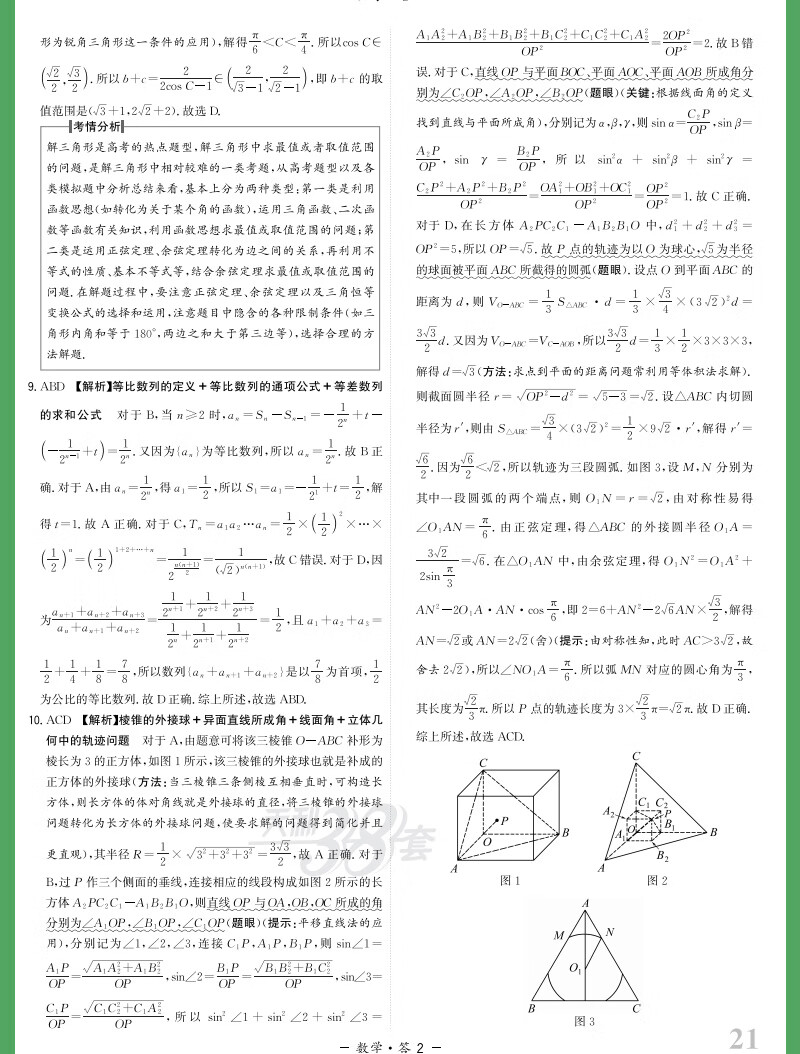 形为锐角三角形这一条件的应用),解得π/6<C<π/4. 所以cos C∈
(√2/2,√3/2). 所以 b+c=2/(2cos C−1)∈(2/(√3−1),2/(√2−1)),即 b+c 的取
值范围是(√3+1,2√2+2). 故选 D.
考情分析
解三角形是高考的热点题型,解三角形中求最值或者取值范围
的问题,是解三角形中相对较难的一类考题,从高考题型以及各
类模拟题中分析总结来看,基本上分为两种类型:第一类是利用
函数思想(如转化为关于某个角的函数),运用三角函数、二次函
数等函数有关知识,利用函数思想求最值或取值范围的问题;第
二类是运用正弦定理、余弦定理转化为边之间的关系,再利用不
等式的性质、基本不等式等,结合余弦定理求最值或取值范围的
问题. 在解题过程中,要注意正弦定理、余弦定理以及三角恒等
变换公式的选择和运用,注意题目中隐含的各种限制条件(如三
角形内角和等于 180°,两边之和大于第三边等),选择合理的方
法解题.
9. ABD 【解析】等比数列的定义+等比数列的通项公式+等差数列
的求和公式 对于 B,当 n≥2 时,aₙ=Sₙ−Sₙ₋₁=−1/2ⁿ+t−
(−1/2ⁿ⁻¹+t)=1/2ⁿ. 又因为{aₙ}为等比数列,所以 aₙ=1/2ⁿ. 故 B 正
确. 对于 A,由 aₙ=1/2ⁿ,得 a₁=1/2,所以 S₁=a₁=−1/2¹+t=1/2,解
得 t=1. 故 A 正确. 对于 C,Tₙ=a₁a₂…aₙ=1/2×(1/2)²×…×
(1/2)ⁿ=(1/2)^(1+2+…+n)=1/2^(n(n+1)/2)=1/(√2)^(n(n+1)),故 C 错误. 对于 D,因
为(aₙ₊₁+aₙ₊₂+aₙ₊₃)/(aₙ+aₙ₊₁+aₙ₊₂)=(1/2ⁿ⁺¹+1/2ⁿ⁺²+1/2ⁿ⁺³)/(1/2ⁿ+1/2ⁿ⁺¹+1/2ⁿ⁺²)=1/2,且 a₁+a₂+a₃=
1/2+1/4+1/8=7/8,所以数列{aₙ+aₙ₊₁+aₙ₊₂}是以7/8为首项,1/2
为公比的等比数列. 故 D 正确. 综上所述,故选 ABD.
10. ACD 【解析】棱锥的外接球+异面直线所成角+线面角+立体几
何中的轨迹问题 对于 A,由题意可将该三棱锥 O—ABC 补形为
棱长为 3 的正方体,如图 1 所示,该三棱锥的外接球也就是补成的
正方体的外接球(方法:当三棱锥三条侧棱互相垂直时,可构造长
方体,则长方体的体对角线就是外接球的直径,将三棱锥的外接球
问题转化为长方体的外接球问题,使要求解的问题得到简化并且
更直观),其半径 R=1/2×√(3²+3²+3²)=3√3/2,故 A 正确. 对于
B,过 P 作三个侧面的垂线,连接相应的线段构成如图 2 所示的长
方体 A₂PC₂C₁—A₁B₂B₁O,则直线 OP 与 OA,OB,OC 所成的角
分别为∠A₁OP,∠B₁OP,∠C₁OP(题眼)(提示:平移直线法的应
用),分别记为∠1,∠2,∠3,连接 C₁P,A₁P,B₁P,则 sin∠1=
A₁P/OP=√(A₁A₂²+A₁B₂²)/OP,sin∠2=B₁P/OP=√(B₁B₂²+B₁C₂²)/OP,sin∠3=
C₁P/OP=√(C₁C₂²+C₁A₂²)/OP,所以 sin²∠1+sin²∠2+sin²∠3=
(A₁A₂²+A₁B₂²+B₁B₂²+B₁C₂²+C₁C₂²+C₁A₂²)/OP²=2OP²/OP²=2. 故 B 错
误. 对于 C,直线 OP 与平面 BOC、平面 AOC、平面 AOB 所成角分
别为∠C₂OP,∠A₂OP,∠B₂OP(题眼)(关键:根据线面角的定义
找到直线与平面所成角),分别记为 α,β,γ,则 sin α=C₂P/OP,sin β=
A₂P/OP,sin γ=B₂P/OP,所以 sin²α+sin²β+sin²γ=
(C₂P²+A₂P²+B₂P²)/OP²=(OA₁²+OB₁²+OC₁²)/OP²=OP²/OP²=1. 故 C 正确.
对于 D,在长方体 A₂PC₂C₁—A₁B₂B₁O 中,d₁²+d₂²+d₃²=
OP²=5,所以 OP=√5. 故 P 点的轨迹为以 O 为球心,√5为半径
的球面被平面 ABC 所截得的圆弧(题眼). 设点 O 到平面 ABC 的
距离为 d,则 V_O−ABC=1/3 S△ABC·d=1/3×√3/4×(3√2)²d=
3√3/2 d. 又因为 V_O−ABC=V_C−AOB,所以3√3/2 d=1/3×1/2×3×3×3,
解得 d=√3(方法:求点到平面的距离问题常利用等体积法求解).
则截面圆半径 r=√(OP²−d²)=√(5−3)=√2. 设△ABC 内切圆
半径为 r′,则由 S△ABC=√3/4×(3√2)²=1/2×9√2·r′,解得 r′=
√6/2. 因为√6/2<√2,所以轨迹为三段圆弧. 如图 3,设 M,N 分别为
其中一段圆弧的两个端点,则 O₁N=r=√2,由对称性易得
∠O₁AN=π/6. 由正弦定理,得△ABC 的外接圆半径 O₁A=
3√2/(2sin π/3)=√6. 在△O₁AN 中,由余弦定理,得 O₁N²=O₁A²+
AN²−2O₁A·AN·cos π/6,即 2=6+AN²−2√6AN×√3/2,解得
AN=√2或 AN=2√2(舍)(提示:由对称性知,此时 AC>3√2,故
舍去 2√2),所以∠NO₁A=π/6. 所以弧 MN 对应的圆心角为π/3,
其长度为√2/3 π. 所以 P 点的轨迹长度为 3×√2/3 π=√2π. 故 D 正确.
综上所述,故选 ACD.
C P O B A
图 1
C A₂ C₁ C₂ P A₁ O B₁ B B₂ A
图 2
A M N O₁ B C
图 3
— 数学·答 2 —
21